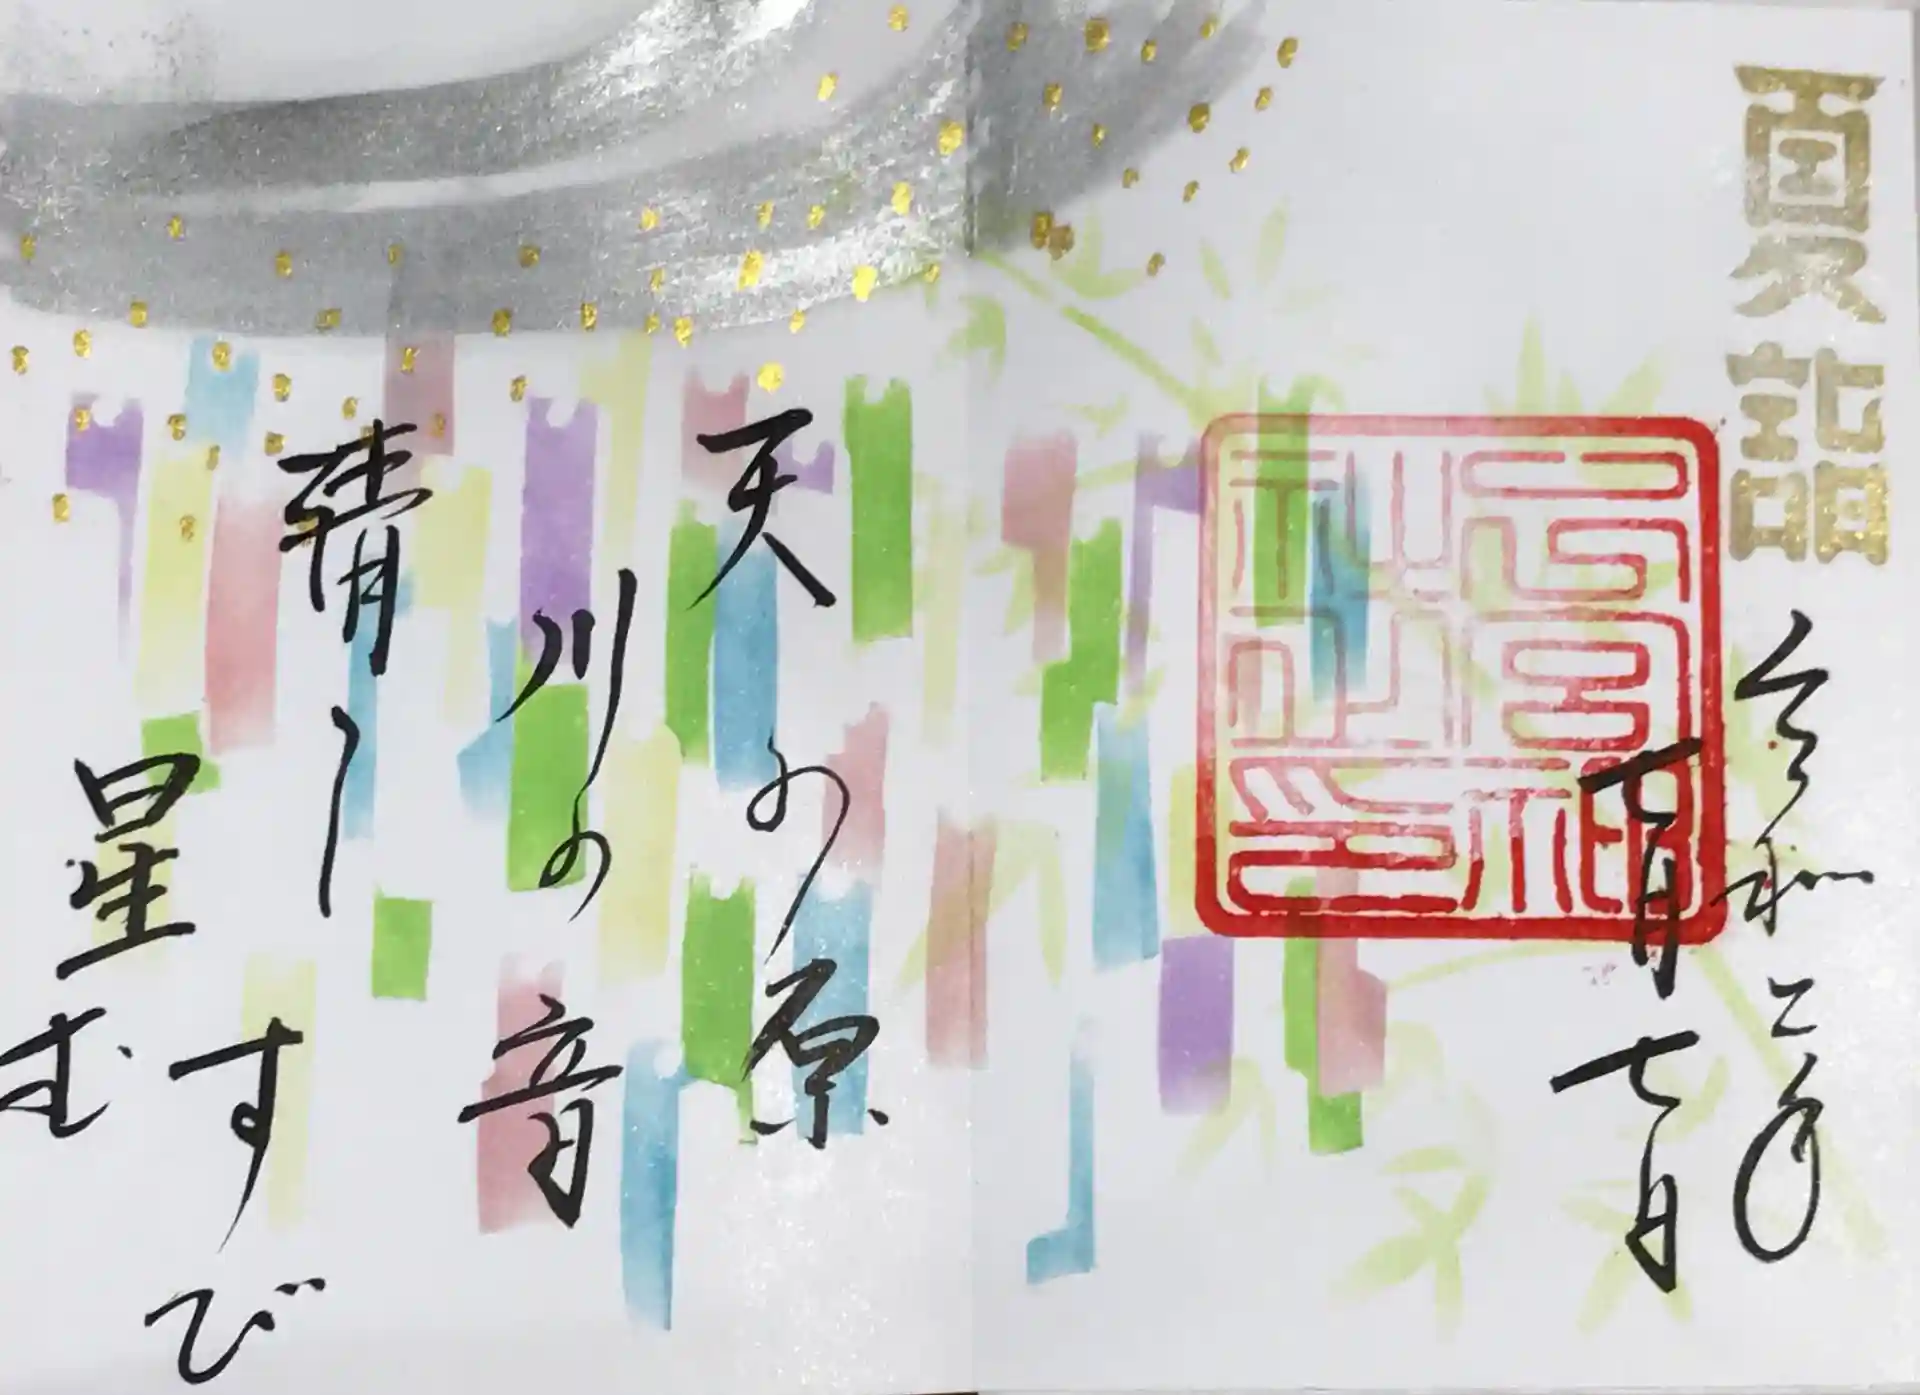 夏詣
令和二年
七月七日
天の原
川の音
清し
星む
すび